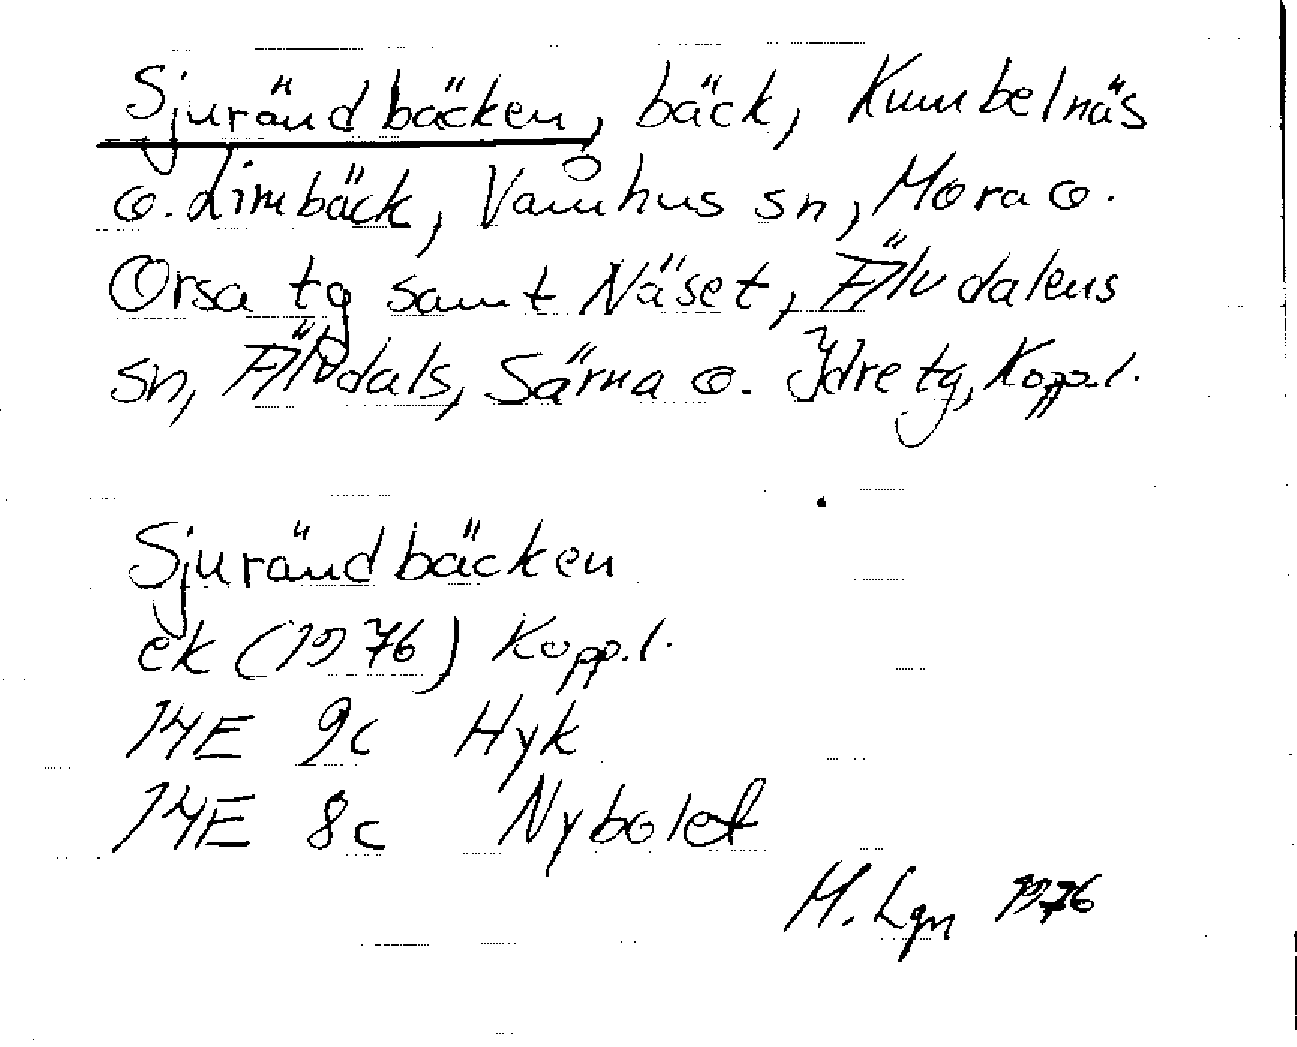 Sjurändbäcken, bäck, Kumbelnäs
o. Limbäck, Våmhus sn, Mora o.
Orsa tg samt Näset, Älvdalens
sn, Älvdals, Särna o. Idre tg, Kopp.l.
Sjurändbäcken
ek (1976) Kopp.l.
14E 9c Hyk
14E 8c Nybolet
M. Lgn 1976